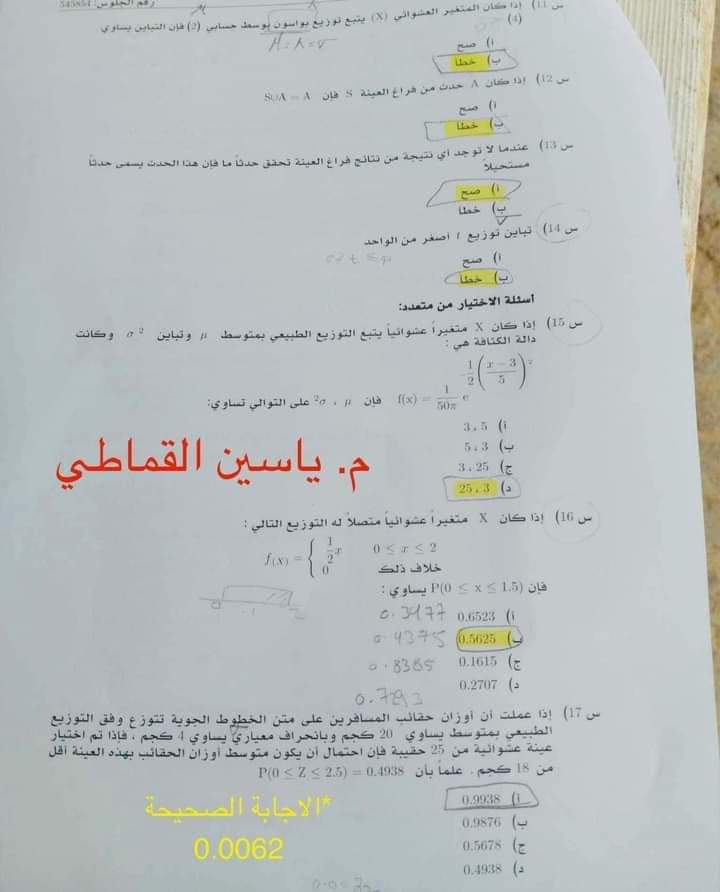 رقم الجلوس: 545854
س 11) إذا كان المتغير العشوائي (X) يتبع توزيع بواسون بوسط حسابي (2) فإن التباين يساوي
(4)
ا) صح
ب) خطا
س 12) إذا كان A حدث من فراغ العينة S فإن S∪A = A
ا) صح
ب) خطا
س 13) عندما لا توجد أي نتيجة من نتائج فراغ العينة تحقق حدثاً ما فإن هذا الحدث يسمى حدثاً
مستحيلاً
ا) صح
ب) خطا
س 14) تباين توزيع t أصغر من الواحد
ا) صح
ب) خطا
أسئلة الاختيار من متعدد:
س 15) إذا كان X متغيراً عشوائياً يتبع التوزيع الطبيعي بمتوسط μ وتباين σ² وكانت
دالة الكثافة هي:
f(x) = 1/50π e^-1/2((x − 3)/5)² فإن μ ، σ² على التوالي تساوي:
ا) 3 ، 5
ب) 5 ، 3
ج) 3 ، 25
د) 25 ، 3
م. ياسين القماطي
س 16) إذا كان X متغيراً عشوائياً متصلاً له التوزيع التالي:
f(x) = { 1/2 x 0 ≤ x ≤ 2
0 خلاف ذلك
فإن P(0 ≤ x ≤ 1.5) يساوي:
ا) 0.6523 0.3477
ب) 0.5625 0.4375
ج) 0.1615 0.8385
د) 0.2707 0.7293
س 17) إذا عملت أن أوزان حقائب المسافرين على متن الخطوط الجوية تتوزع وفق التوزيع
الطبيعي بمتوسط يساوي 20 كجم وبانحراف معياري يساوي 4 كجم ، فإذا تم اختيار
عينة عشوائية من 25 حقيبة فإن احتمال أن يكون متوسط أوزان الحقائب بهذه العينة أقل
من 18 كجم . علماً بأن P(0 ≤ Z ≤ 2.5) = 0.4938
ا) 0.9938
ب) 0.9876
ج) 0.5678
د) 0.4938
*الاجابة الصحيحة
0.0062